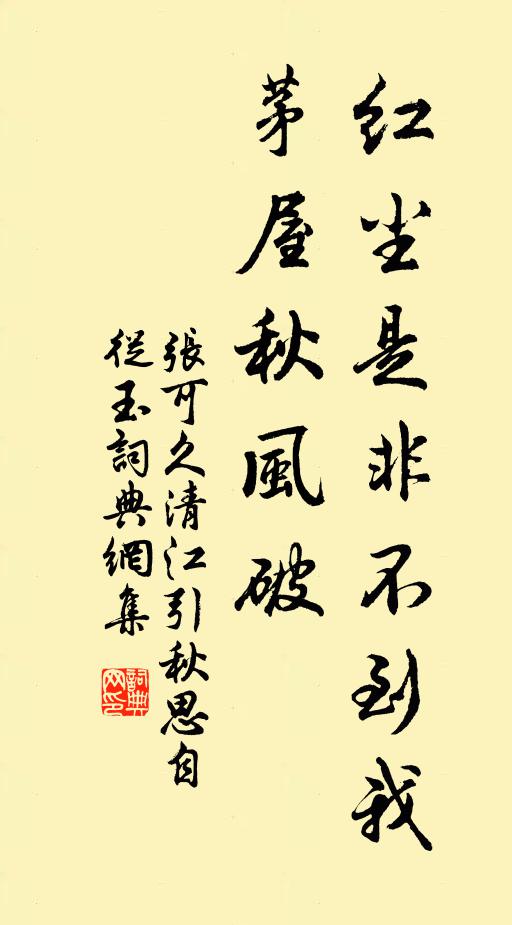 红尘是非不到我
茅屋秋風破
張可久清江引秋思自
從玉詞典網集
詞典网印